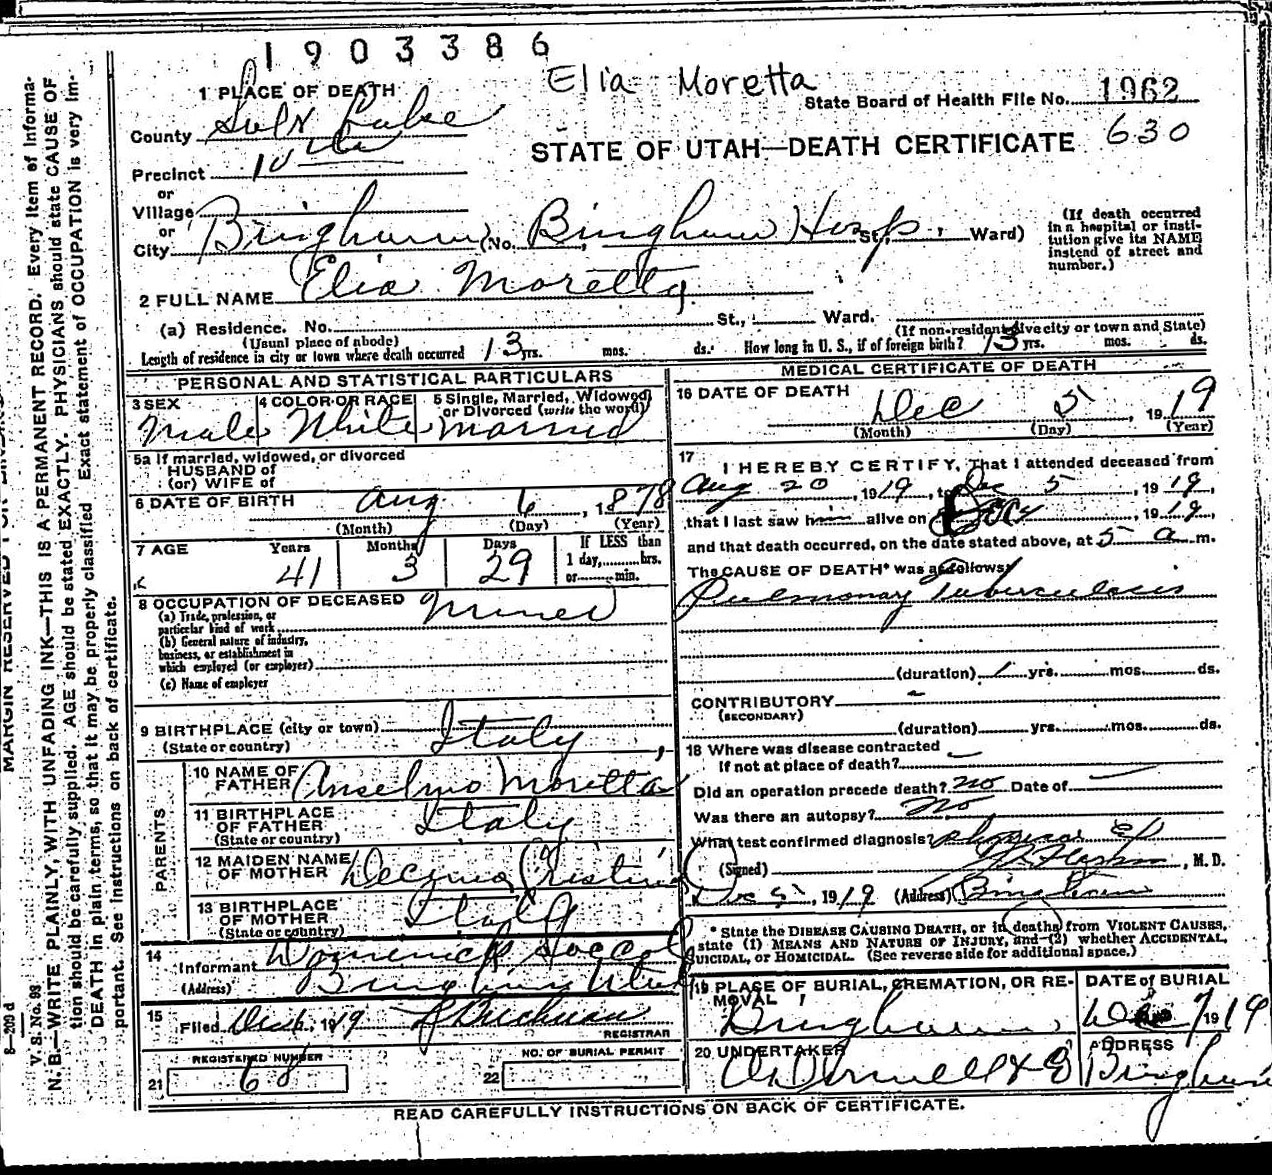 1903386
Elia Moretta
1 PLACE OF DEATH
State Board of Health File No. 1962
County Salt Lake
STATE OF UTAH—DEATH CERTIFICATE 630
Precinct
or
Village
or
City Bingham (No. Bingham Hosp St., Ward)
(If death occurred in a hospital or institution give its NAME instead of street and number.)
2 FULL NAME Elia Moretta
(a) Residence. No. St., Ward.
(Usual place of abode) (If non-resident give city or town and State)
Length of residence in city or town where death occurred 13 yrs. mos. ds. How long in U. S., if of foreign birth? 13 yrs. mos. ds.
PERSONAL AND STATISTICAL PARTICULARS
3 SEX Male
4 COLOR OR RACE White
5 Single, Married, Widowed or Divorced (write the word) Married
5a If married, widowed, or divorced
HUSBAND of
(or) WIFE of
6 DATE OF BIRTH Aug 6, 1878
(Month) (Day) (Year)
7 AGE Years 41 Months 3 Days 29 If LESS than 1 day, hrs. or min.
8 OCCUPATION OF DECEASED Miner
(a) Trade, profession, or
particular kind of work
(b) General nature of industry,
business, or establishment in
which employed (or employer)
(c) Name of employer
9 BIRTHPLACE (city or town) Italy
(State or country)
PARENTS
10 NAME OF FATHER Anselmo Moretta
11 BIRTHPLACE OF FATHER Italy
(State or country)
12 MAIDEN NAME OF MOTHER Cristina
13 BIRTHPLACE OF MOTHER Italy
(State or country)
14 Informant Dominick
(Address) Bingham Utah
15 Filed 1919
REGISTRAR
REGISTERED NUMBER
21 68
NO. OF BURIAL PERMIT
22
MEDICAL CERTIFICATE OF DEATH
16 DATE OF DEATH Dec 5, 1919
(Month) (Day) (Year)
17 I HEREBY CERTIFY, That I attended deceased from
Aug 20, 1919, to Dec 5, 1919,
that I last saw him alive on 1919,
and that death occurred, on the date stated above, at 5 a m.
The CAUSE OF DEATH* was as follows:
Pulmonary Tuberculosis
(duration) 1 yrs. mos. ds.
CONTRIBUTORY
(SECONDARY)
(duration) yrs. mos. ds.
18 Where was disease contracted
If not at place of death?
Did an operation precede death? no Date of
Was there an autopsy? no
What test confirmed diagnosis?
(Signed) , M. D.
Dec 5, 1919 (Address) Bingham
* State the DISEASE CAUSING DEATH, or in deaths from VIOLENT CAUSES, state (1) MEANS AND NATURE OF INJURY, and (2) whether ACCIDENTAL, SUICIDAL, OR HOMICIDAL. (See reverse side for additional space.)
19 PLACE OF BURIAL, CREMATION, OR REMOVAL Bingham
DATE of BURIAL Dec 7 1919
20 UNDERTAKER
ADDRESS Bingham
READ CAREFULLY INSTRUCTIONS ON BACK OF CERTIFICATE.
V. S. No. 93
N. B.—WRITE PLAINLY, WITH UNFADING INK—THIS IS A PERMANENT RECORD. Every item of information should be carefully supplied. AGE should be stated EXACTLY. PHYSICIANS should state CAUSE OF DEATH in plain terms, so that it may be properly classified. Exact statement of OCCUPATION is very important. See instructions on back of certificate.